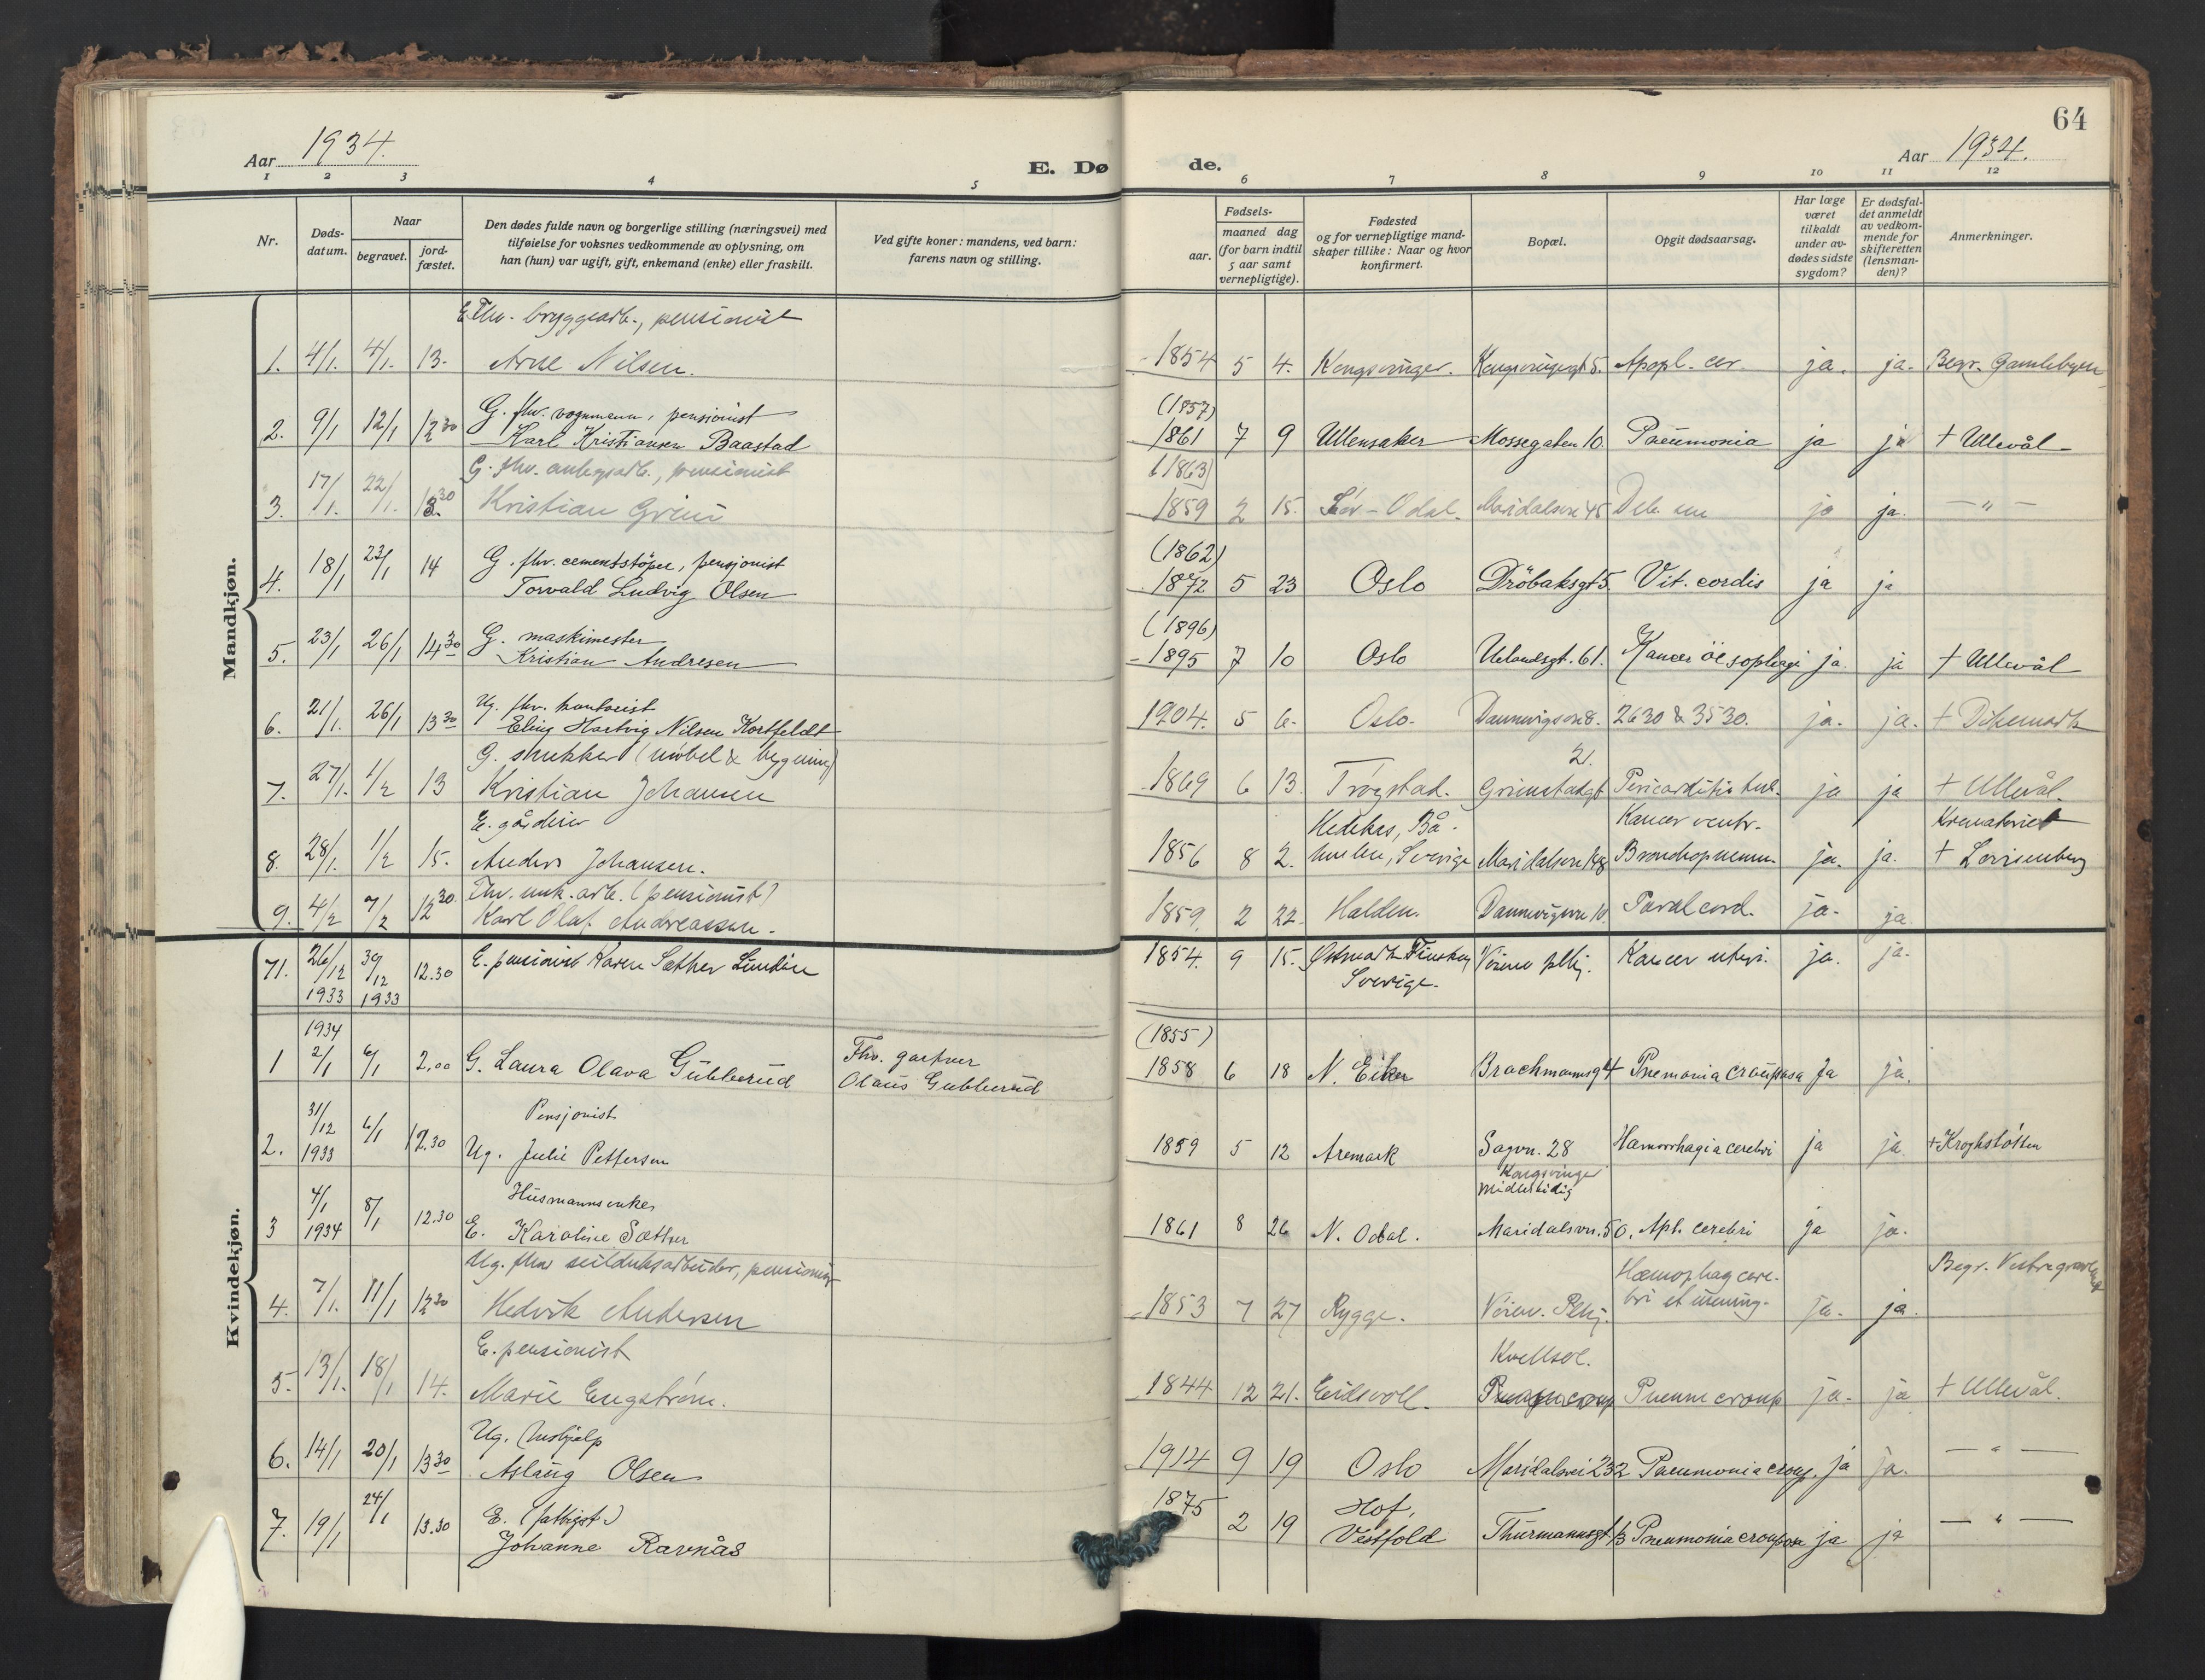 64
Aar 1934.
E. Døde.
Aar 1934.
1 2 3 4 5 6 7 8 9 10 11 12
Nr.
Døds-
datum.
Naar
begravet.
jord-
fæstet.
Den dødes fulde navn og borgerlige stilling (næringsvei) med
tilføielse for voksnes vedkommende av oplysning, om
han (hun) var ugift, gift, enkemand (enke) eller fraskilt.
Ved gifte koner: mandens, ved barn:
farens navn og stilling.
Fødsels-
aar.
maaned dag
(for barn indtil
5 aar samt
vernepligtige).
Fødested
og for vernepligtige mand-
skaper tillike: Naar og hvor
konfirmert.
Bopæl.
Opgit dødsaarsag.
Har læge
været
tilkaldt
under av-
dødes sidste
sygdom?
Er dødsfal-
det anmeldt
av vedkom-
mende for
skifteretten
(lensman-
den)?
Anmerkninger.
Mandkjøn.
E. Fhv. bryggearb., pensionist
1. 4/1. 4/1. 13. Arne Nilsen. 1854 5 4. Kongsvinger. Kongsvingergt 5. Apopl. cer. ja. ja. Begr. Gamlebyen
G. fhv. vognmann, pensjonist (1857)
2. 9/1 12/1 12 30 Karl Kristiansen Baastad 1861 7 9 Ullensaker Mossegaten 10. Pneumonia ja ja + Ullevål
G. fhv. anlegsarb., pensionist (1863)
3. 17/1. 22/1. 13 30 Kristian Grini 1859 2 15. Sør-Odal. Maridalsvn 45 Deb. sen ja ja. — " —
G. fhv. cementstöper, pensjonist (1862)
4. 18/1 23/1 14 Torvald Ludvig Olsen 1872 5 23 Oslo Dröbaksgt 5. Vit. cordis ja ja
G. maskimester (1896)
5. 23/1 26/1 14 30 Kristian Andresen 1895 7 10 Oslo Uelandsgt. 61. Kancer öesophagi ja. ja + Ullevål
Ug. fhv. kontorist
6. 21/1. 26/1 13 30 Eling Hartvig Nilsen Kortfeldt 1904. 5 6. Oslo. Dannevigsvn 8. 2630 & 3530. ja. ja. + Dikemark
G. snekker (møbel & bygning) 2.
7. 27/1. 1/2 13 Kristian Johansen 1869 6 13. Trøgstad. Grimstadgt Pericarditis tub. ja ja + Ullevål.
E. gårdeier Hedekas, Bå- Kancer ventr. Krematoriet
8. 28/1. 1/2 15. Anders Johansen. 1856 8 2. huslen, Sverige Maridalsvn 148 Bronchopneum. ja. ja. + Lovisenberg
Fhv. murarb. (pensionist)
9. 4/2 7/2 12 30. Karl Olaf Andreassen. 1859. 2 22. Halden. Dannevigsvn 10. Paral cord. ja. ja
Kvindekjøn.
71. 26/12 1933 30/12 1933 12.30 E. pensionist Karen Sæther Lundin 1854. 9 15. Østmark Finskog Sverige. Voienv plhj. Kancer uteri. ja. ja.
1934 Fhv. gartner (1855)
1 2/1 6/1 2.00 G. Laura Olava Gubberud Olaus Gubberud 1858 6 18 N. Eiker Brochmannsgt 4 Pnemonia croüposa Ja ja.
Pensjonist
2. 31/12 1933 6/1 12.30 Ug. Julie Pettersen 1859 5 12 Aremark Sagvn. 28 Hæmorrhagia cerebri ja ja + Kroghstötten
Husmannsenke Kongsvinger midlertidig
3 4/1 1934 8/1 12.30 E. Karoline Sæther 1861 8 26 N. Odal. Maridalsvn. 50. Apl. cerebri ja ja.
Ug. fhv seilduksarbeider, pensionist Hæmophag cere- Begr. Vestre gravlund
4. 7/1. 11/1 12 30 Hedvik Andersen 1853 7 27 Rygge. Voienv. Plhj. bri et mening. ja. ja.
E. pensionist Kvellsol.
5. 13/1. 18/1 14. Marie Engstrøm. 1844 12 21. Eidsvoll. Pneum croup ja. ja + Ullevål.
Ug. hushjelp
6. 14/1 20/1 13 30 Aslaug Olsen 1914 9 19 Oslo Maridalsvei 232 Pneumonia croup. ja ja. — " —
E. (fattigst.) 1875 Hof,
7. 19/1 24/1 13.30 Johanne Ravnås 2 19 Vestfold Thurmannsgt. 1/3 Pneumonia crouposa ja ja — " —